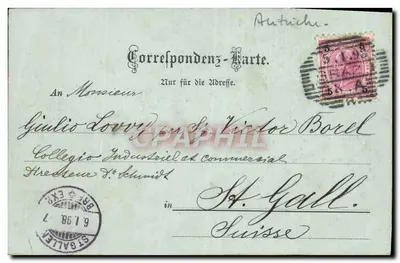 Autriche.
5 5
5.1.98
5 5
Correspondenz-Karte.
Nur für die Adresse.
An Monsieur
Giulio Lovy p. Sr. Victor Borel
Collegio Industriel et commercial
Directeur Dr Schmidt
in St. Gall.
Suisse
ST. GALLEN
6.I.98. 7
BRF. EXP.
PHAPIE